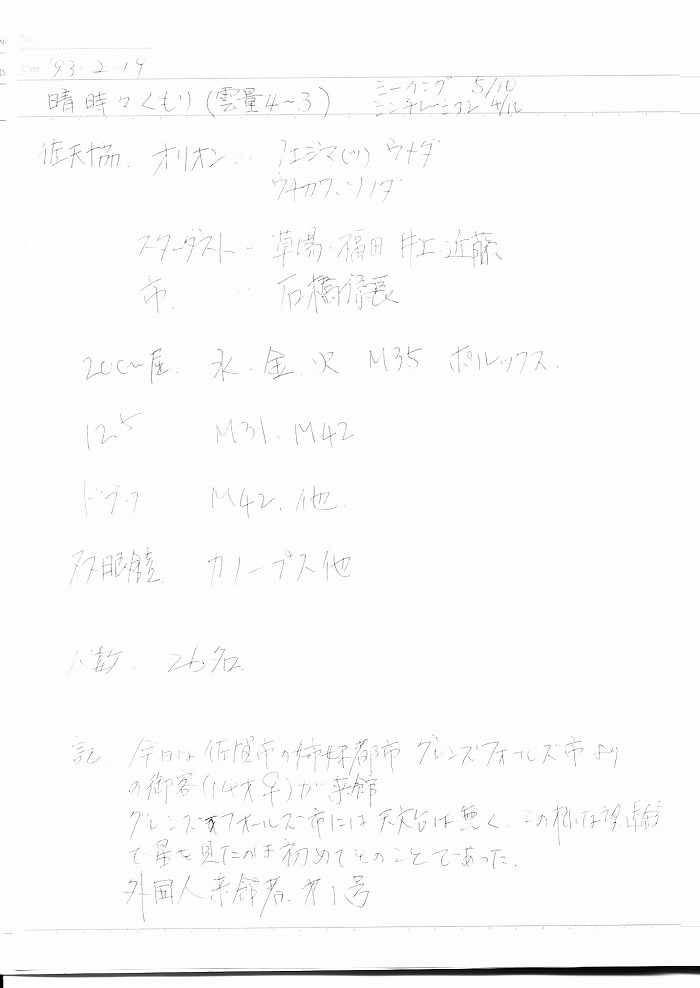 No.
Date '93・2・19
晴時々くもり(雲量4~3)
シーイング 5/10
シンチレーション 4/10
佐天協. オリオン‥ フエジマ(ツ) ウメダ
ウチカワ. ソノダ
スターダスト‥ 草場・福田 井上・近藤
市. ‥ 石橋
20cm屈. 水・金. 火 M35 ポルックス.
12.5 M31. M42
ドブ M42. 他.
双眼鏡. カノープス他
人数. 26名.
記. 今日は佐賀市の姉妹都市 グレンズフォールズ市より
の御客(14才♀)が来館
グレンズフォールズ市には天文台は無く、この様な望遠鏡
で星を見たのは初めてとのことであった.
外国人来館者. 才1号